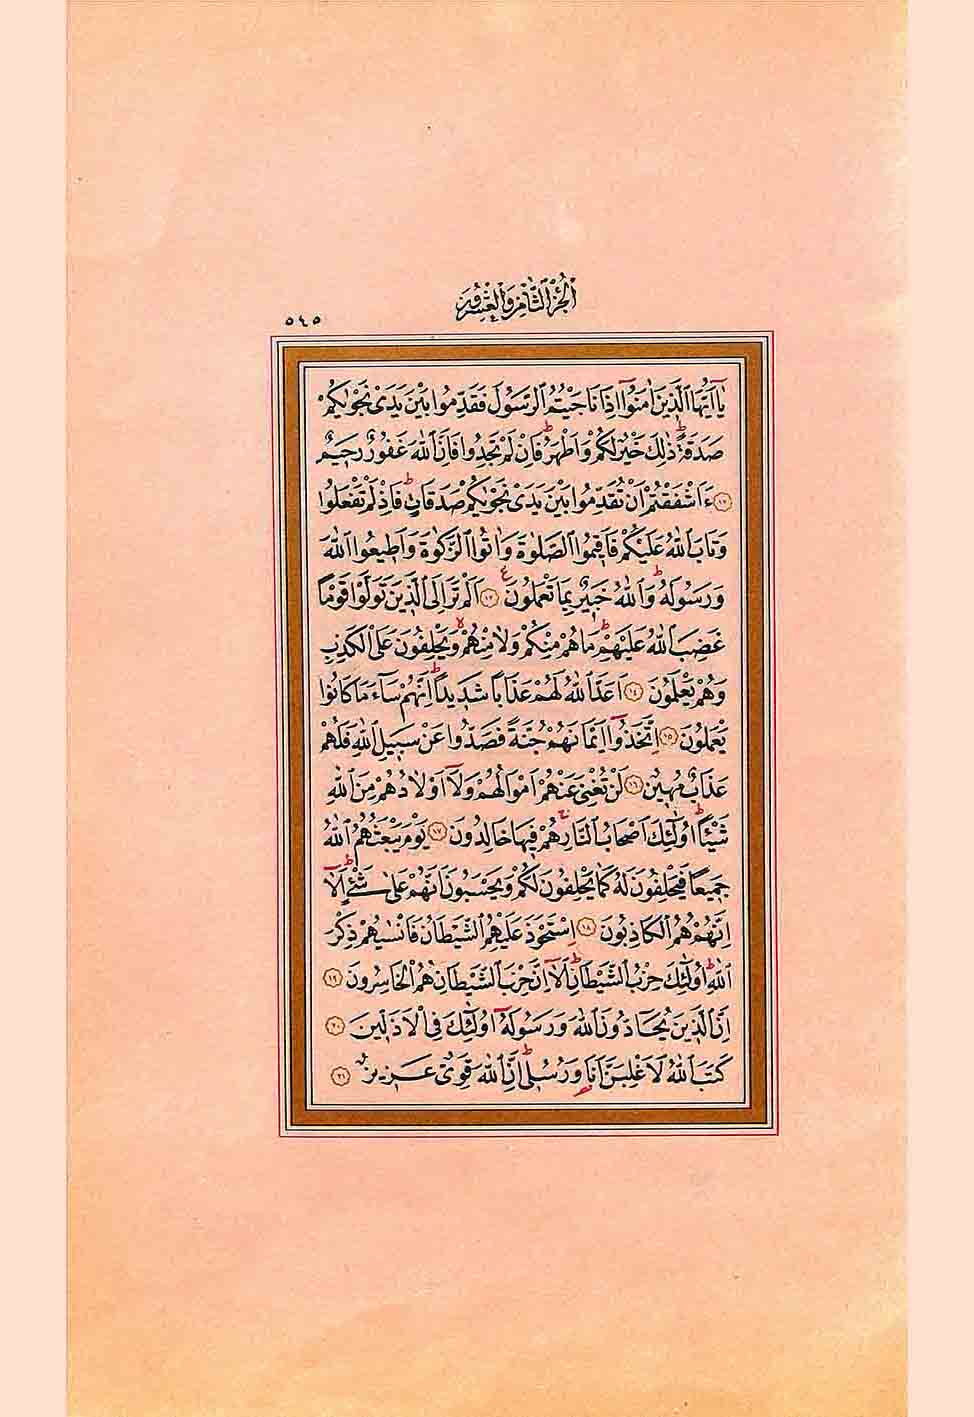 الجزء الثامن والعشرون
٥٤٥
يَٓا اَيُّهَا الَّذ۪ينَ اٰمَنُٓوا اِذَا نَاجَيْتُمُ الرَّسُولَ فَقَدِّمُوا بَيْنَ يَدَيْ نَجْوٰيكُمْ
صَدَقَةًۜ ذٰلِكَ خَيْرٌ لَكُمْ وَاَطْهَرُۜ فَاِنْ لَمْ تَجِدُوا فَاِنَّ اللّٰهَ غَفُورٌ رَح۪يمٌ
﴿١٢﴾ ءَاَشْفَقْتُمْ اَنْ تُقَدِّمُوا بَيْنَ يَدَيْ نَجْوٰيكُمْ صَدَقَاتٍۜ فَاِذْ لَمْ تَفْعَلُوا
وَتَابَ اللّٰهُ عَلَيْكُمْ فَاَق۪يمُوا الصَّلٰوةَ وَاٰتُوا الزَّكٰوةَ وَاَط۪يعُوا اللّٰهَ
وَرَسُولَهُۜ وَاللّٰهُ خَب۪يرٌ بِمَا تَعْمَلُونَ۟ ﴿١٣﴾ اَلَمْ تَرَ اِلَى الَّذ۪ينَ تَوَلَّوْا قَوْمًا
غَضِبَ اللّٰهُ عَلَيْهِمْۜ مَا هُمْ مِنْكُمْ وَلَا مِنْهُمْۙ وَيَحْلِفُونَ عَلَى الْكَذِبِ
وَهُمْ يَعْلَمُونَ ﴿١٤﴾ اَعَدَّ اللّٰهُ لَهُمْ عَذَابًا شَد۪يدًاۜ اِنَّهُمْ سَٓاءَ مَا كَانُوا
يَعْمَلُونَ ﴿١٥﴾ اِتَّخَذُٓوا اَيْمَانَهُمْ جُنَّةً فَصَدُّوا عَنْ سَب۪يلِ اللّٰهِ فَلَهُمْ
عَذَابٌ مُه۪ينٌ ﴿١٦﴾ لَنْ تُغْنِيَ عَنْهُمْ اَمْوَالُهُمْ وَلَٓا اَوْلَادُهُمْ مِنَ اللّٰهِ
شَيْـًٔاۜ اُو۬لٰٓئِكَ اَصْحَابُ النَّارِۜ هُمْ ف۪يهَا خَالِدُونَ ﴿١٧﴾ يَوْمَ يَبْعَثُهُمُ اللّٰهُ
جَم۪يعًا فَيَحْلِفُونَ لَهُ كَمَا يَحْلِفُونَ لَكُمْ وَيَحْسَبُونَ اَنَّهُمْ عَلٰى شَيْءٍۜ اَلَٓا
اِنَّهُمْ هُمُ الْكَاذِبُونَ ﴿١٨﴾ اِسْتَحْوَذَ عَلَيْهِمُ الشَّيْطَانُ فَاَنْسٰيهُمْ ذِكْرَ
اللّٰهِۜ اُو۬لٰٓئِكَ حِزْبُ الشَّيْطَانِۜ اَلَٓا اِنَّ حِزْبَ الشَّيْطَانِ هُمُ الْخَاسِرُونَ ﴿١٩﴾
اِنَّ الَّذ۪ينَ يُحَٓادُّونَ اللّٰهَ وَرَسُولَهُٓ اُو۬لٰٓئِكَ فِي الْاَذَلّ۪ينَ ﴿٢٠﴾
كَتَبَ اللّٰهُ لَاَغْلِبَنَّ اَنَا۬ وَرُسُل۪يۜ اِنَّ اللّٰهَ قَوِيٌّ عَز۪يزٌ ﴿٢١﴾